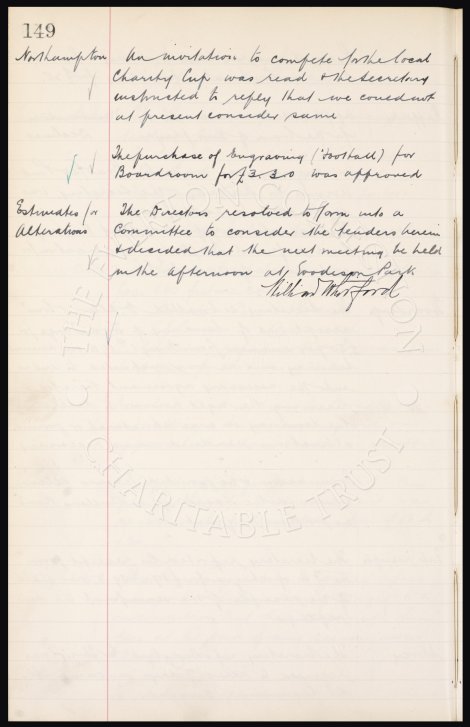 149
Northampton An invitation to compete for the local
Charity Cup was read & the Secretary
instructed to reply that we could not
at present consider same
The purchase of Engraving ("Football") for
Boardroom for £3.3.0 was approved
Estimates for The Directors resolved to form into a
Alterations Committee to consider the tenders herein
& decided that the next meeting be held
in the afternoon at Goodison Park
Will
THE EVERTON COLLECTION
CHARITABLE TRUST